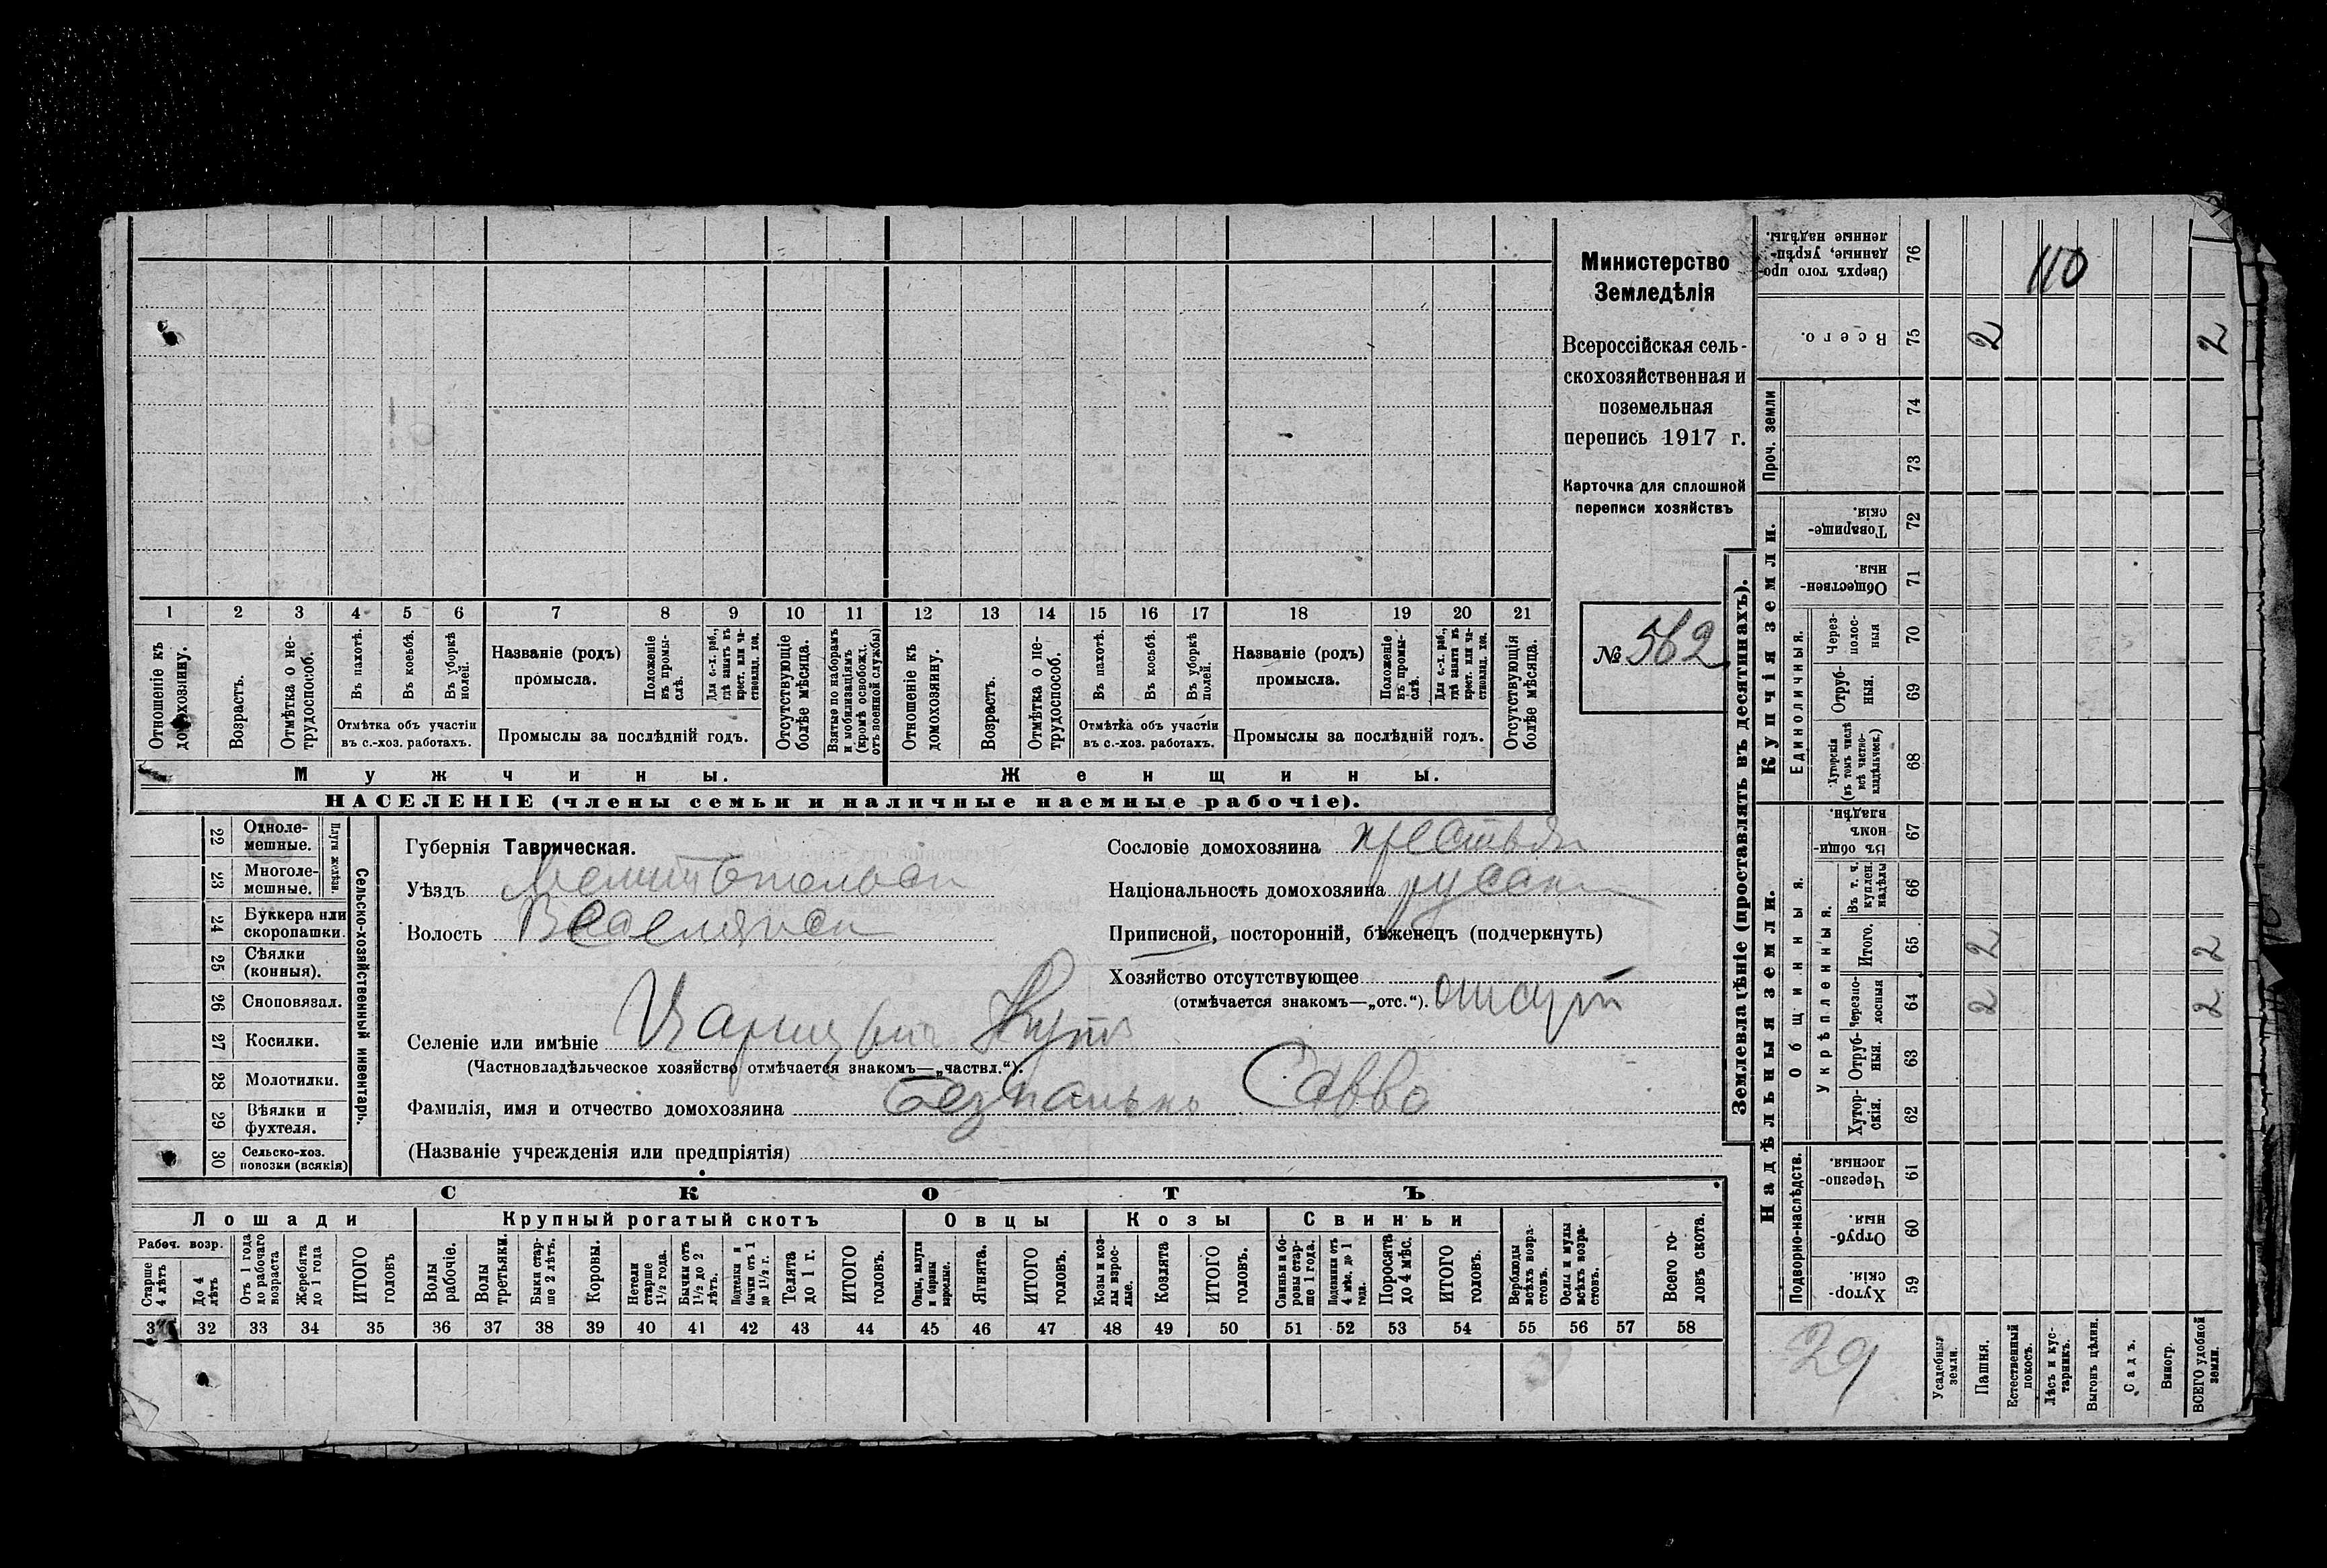 Министерство
Земледѣлія
Всероссійская сель-
скохозяйственная и
поземельная
перепись 1917 г.
Карточка для сплошной
переписи хозяйствъ
№ 562
1 2 3 4 5 6 7 8 9 10 11 12 13 14 15 16 17 18 19 20 21
Отношеніе къ домохозяину.
Возрастъ.
Отмѣтка о не-трудоспособ.
Въ пахотѣ.
Въ косьбѣ.
Въ уборкѣ полей.
Отмѣтка объ участіи
въ с.-хоз. работахъ.
Названіе (родъ)
промысла.
Положеніе въ промы-слѣ.
Для с.-х. раб., гдѣ занятъ въ крест. или ча-ствовлад. хоз.
Промыслы за послѣдній годъ.
Отсутствующіе болѣе мѣсяца.
Взятые по наборамъ и мобилизаціямъ (кромѣ освобожд. отъ военной службы)
Отношеніе къ домохозяину.
Возрастъ.
Отмѣтка о не-трудоспособ.
Въ пахотѣ.
Въ косьбѣ.
Въ уборкѣ полей.
Отмѣтка объ участіи
въ с.-хоз. работахъ.
Названіе (родъ)
промысла.
Положеніе въ промы-слѣ.
Для с.-х. раб., гдѣ занята въ крест. или ча-ствовлад. хоз.
Промыслы за послѣдній годъ.
Отсутствующія болѣе мѣсяца.
Мужчины. Женщины.
НАСЕЛЕНІЕ (члены семьи и наличные наемные рабочіе).
Сельско-хозяйственный инвентарь.
Плуги желѣзн.
22 Одноле-мешные.
23 Многоле-мешные.
24 Буккера или скоропашки.
25 Сѣялки (конныя).
26 Сноповязал.
27 Косилки.
28 Молотилки.
29 Вѣялки и фухтеля.
30 Сельско-хоз. повозки (всякія)
Губернія Таврическая.
Уѣздъ Мелитопольск
Волость Веселянск
Селеніе или имѣніе Царицынъ Кутъ
(Частновладѣльческое хозяйство отмѣчается знакомъ—„частвл.“).
Фамилія, имя и отчество домохозяина Безпалько Савва
(Названіе учрежденія или предпріятія)
Сословіе домохозяина крестьян
Національность домохозяина русск
Приписной, посторонній, бѣженецъ (подчеркнуть)
Хозяйство отсутствующее
(отмѣчается знакомъ—„отс.“). отсут
СКОТЪ
Лошади Крупный рогатый скотъ Овцы Козы Свиньи
Рабоч. возр.
Старше 4 лѣтъ
До 4 лѣтъ
Отъ 1 года до рабочаго возраста
Жеребята до 1 года
ИТОГО головъ
Волы рабочіе.
Волы третьяки.
Быки стар-ше 2 лѣтъ.
Коровы.
Нетели старше 1½ года.
Бычки отъ 1½ до 2 лѣтъ.
Подтелки и бычки отъ 1 до 1½ г.
Телята до 1 г.
ИТОГО головъ.
Овцы, валухи и бараны взрослые.
Ягнята.
ИТОГО головъ.
Козы и коз-лы взрос-лые.
Козлята
ИТОГО головъ.
Свиньи и бо-ровы стар-ше 1 года.
Подсвинки отъ 4 мѣс. до 1 года.
Поросята до 4 мѣс.
ИТОГО головъ.
Верблюды всѣхъ возра-стовъ.
Ослы и мулы всѣхъ возра-стовъ.
Всего го-ловъ скота.
32 33 34 35 36 37 38 39 40 41 42 43 44 45 46 47 48 49 50 51 52 53 54 55 56 57 58
Землевладѣніе (проставлять въ десятинахъ).
Купчія земли.
Надѣльныя земли.
Сверхъ того про-данные, укрѣп-ленные надѣлы. 76 110
Всего. 75 2 2
Проч. земли 74
73
Товарище-скія. 72
Обществен-ныя. 71
Единоличныя.
Через-полос-ныя 70
Отруб-ныя. 69
Хуторскія (въ томъ числѣ всѣ частно-владѣльческ.) 68
Общинныя.
Въ общи-номъ владѣн. 67
Укрѣпленныя.
Въ т. ч. куплен. надѣлы 66
Итого. 65 2 2
Черезпо-лосныя 64 2 2
Отруб-ныя. 63
Хутор-скія. 62
Подворно-наслѣдств.
Черезпо-лосныя. 61
Отруб-ныя. 60
Хутор-скія. 59
29
Усадебныя земли.
Пашня.
Естественный покосъ.
Лѣсъ и кус-тарникъ.
Выгонъ цѣлин.
Садъ.
Виногр.
ВСЕГО удобной земли.